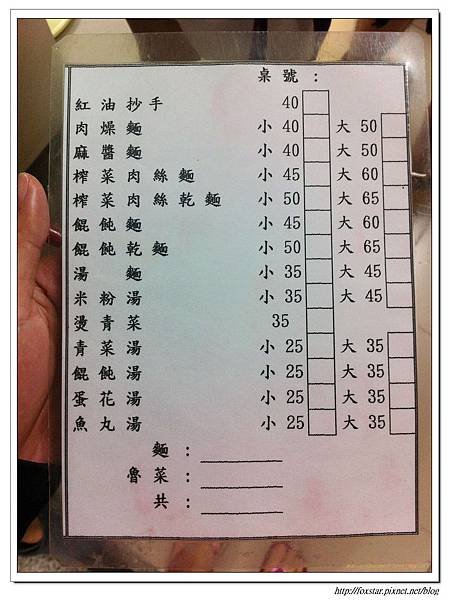 桌號：
紅油抄手 40
肉燥麵 小 40 大 50
麻醬麵 小 40 大 50
榨菜肉絲麵 小 45 大 60
榨菜肉絲乾麵 小 50 大 65
餛飩麵 小 45 大 60
餛飩乾麵 小 50 大 65
湯麵 小 35 大 45
米粉湯 小 35 大 45
燙青菜 35
青菜湯 小 25 大 35
餛飩湯 小 25 大 35
蛋花湯 小 25 大 35
魚丸湯 小 25 大 35
麵：
魯菜：
共：
http://foxstar.pixnet.net/blog